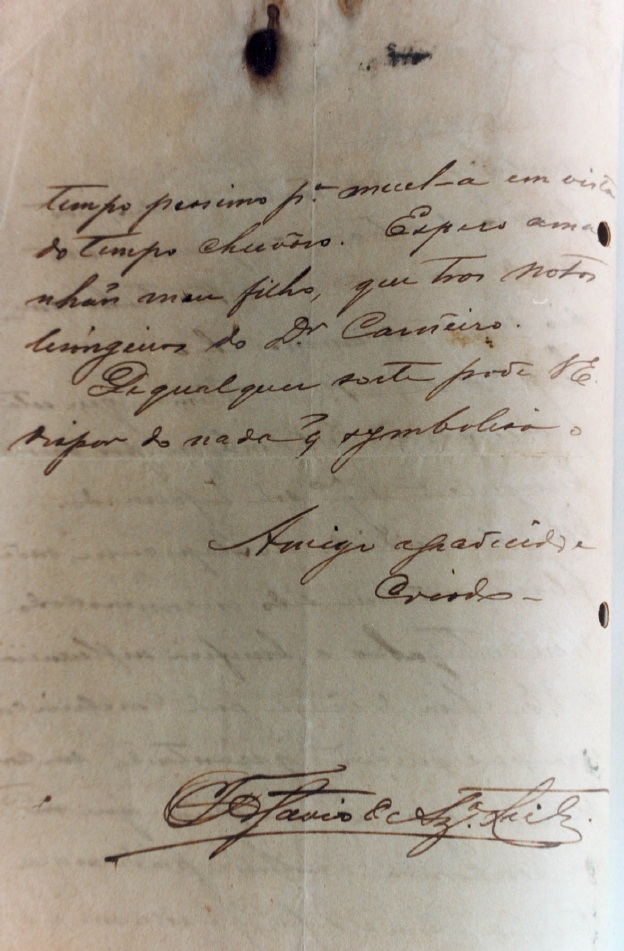 tempo pessimo p.ª muel-a em vista
do tempo chuvôso. Espero ama
nhãn meu filho, que tras notas
do Dr. Carneiro.
De qualquer sorte pode V E.
dispor do nada q symbolisa o
Amigo agradecido e
Criado -